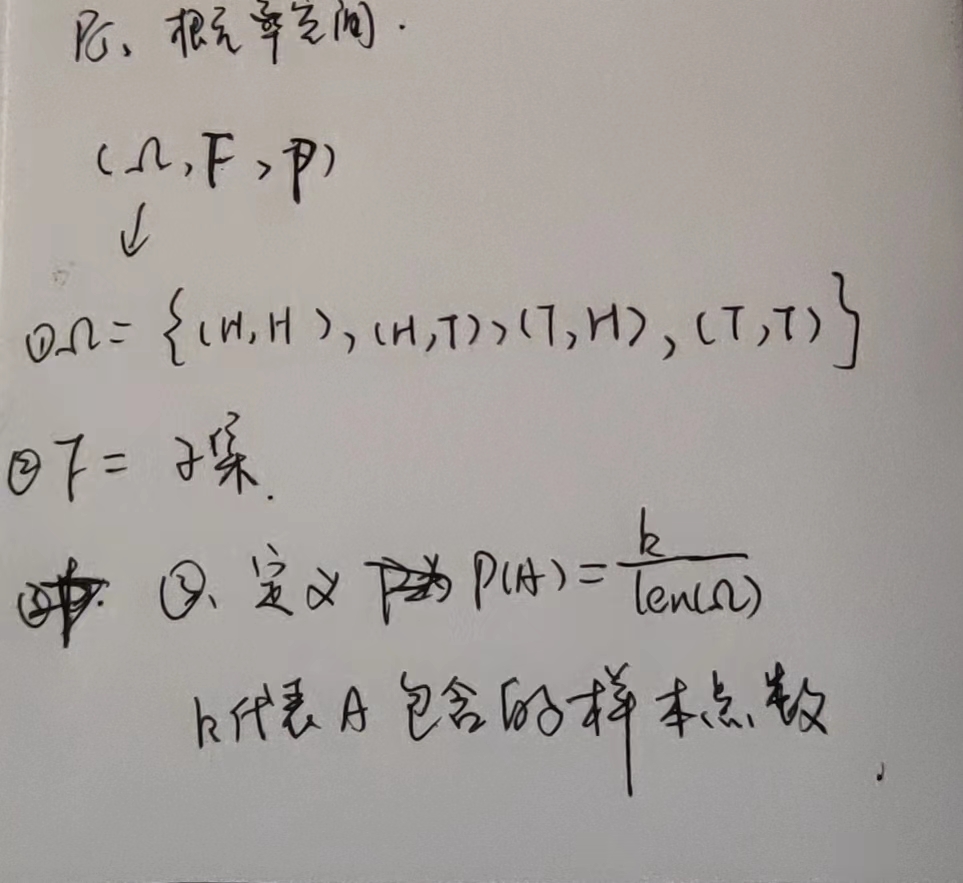 、概率空间.
(Ω, F, P)
↓
①Ω = {(H,H), (H,T), (T,H), (T,T)}
②F = 子集.
③、定义 P(A) = k / len(Ω)
k代表A包含的样本点数